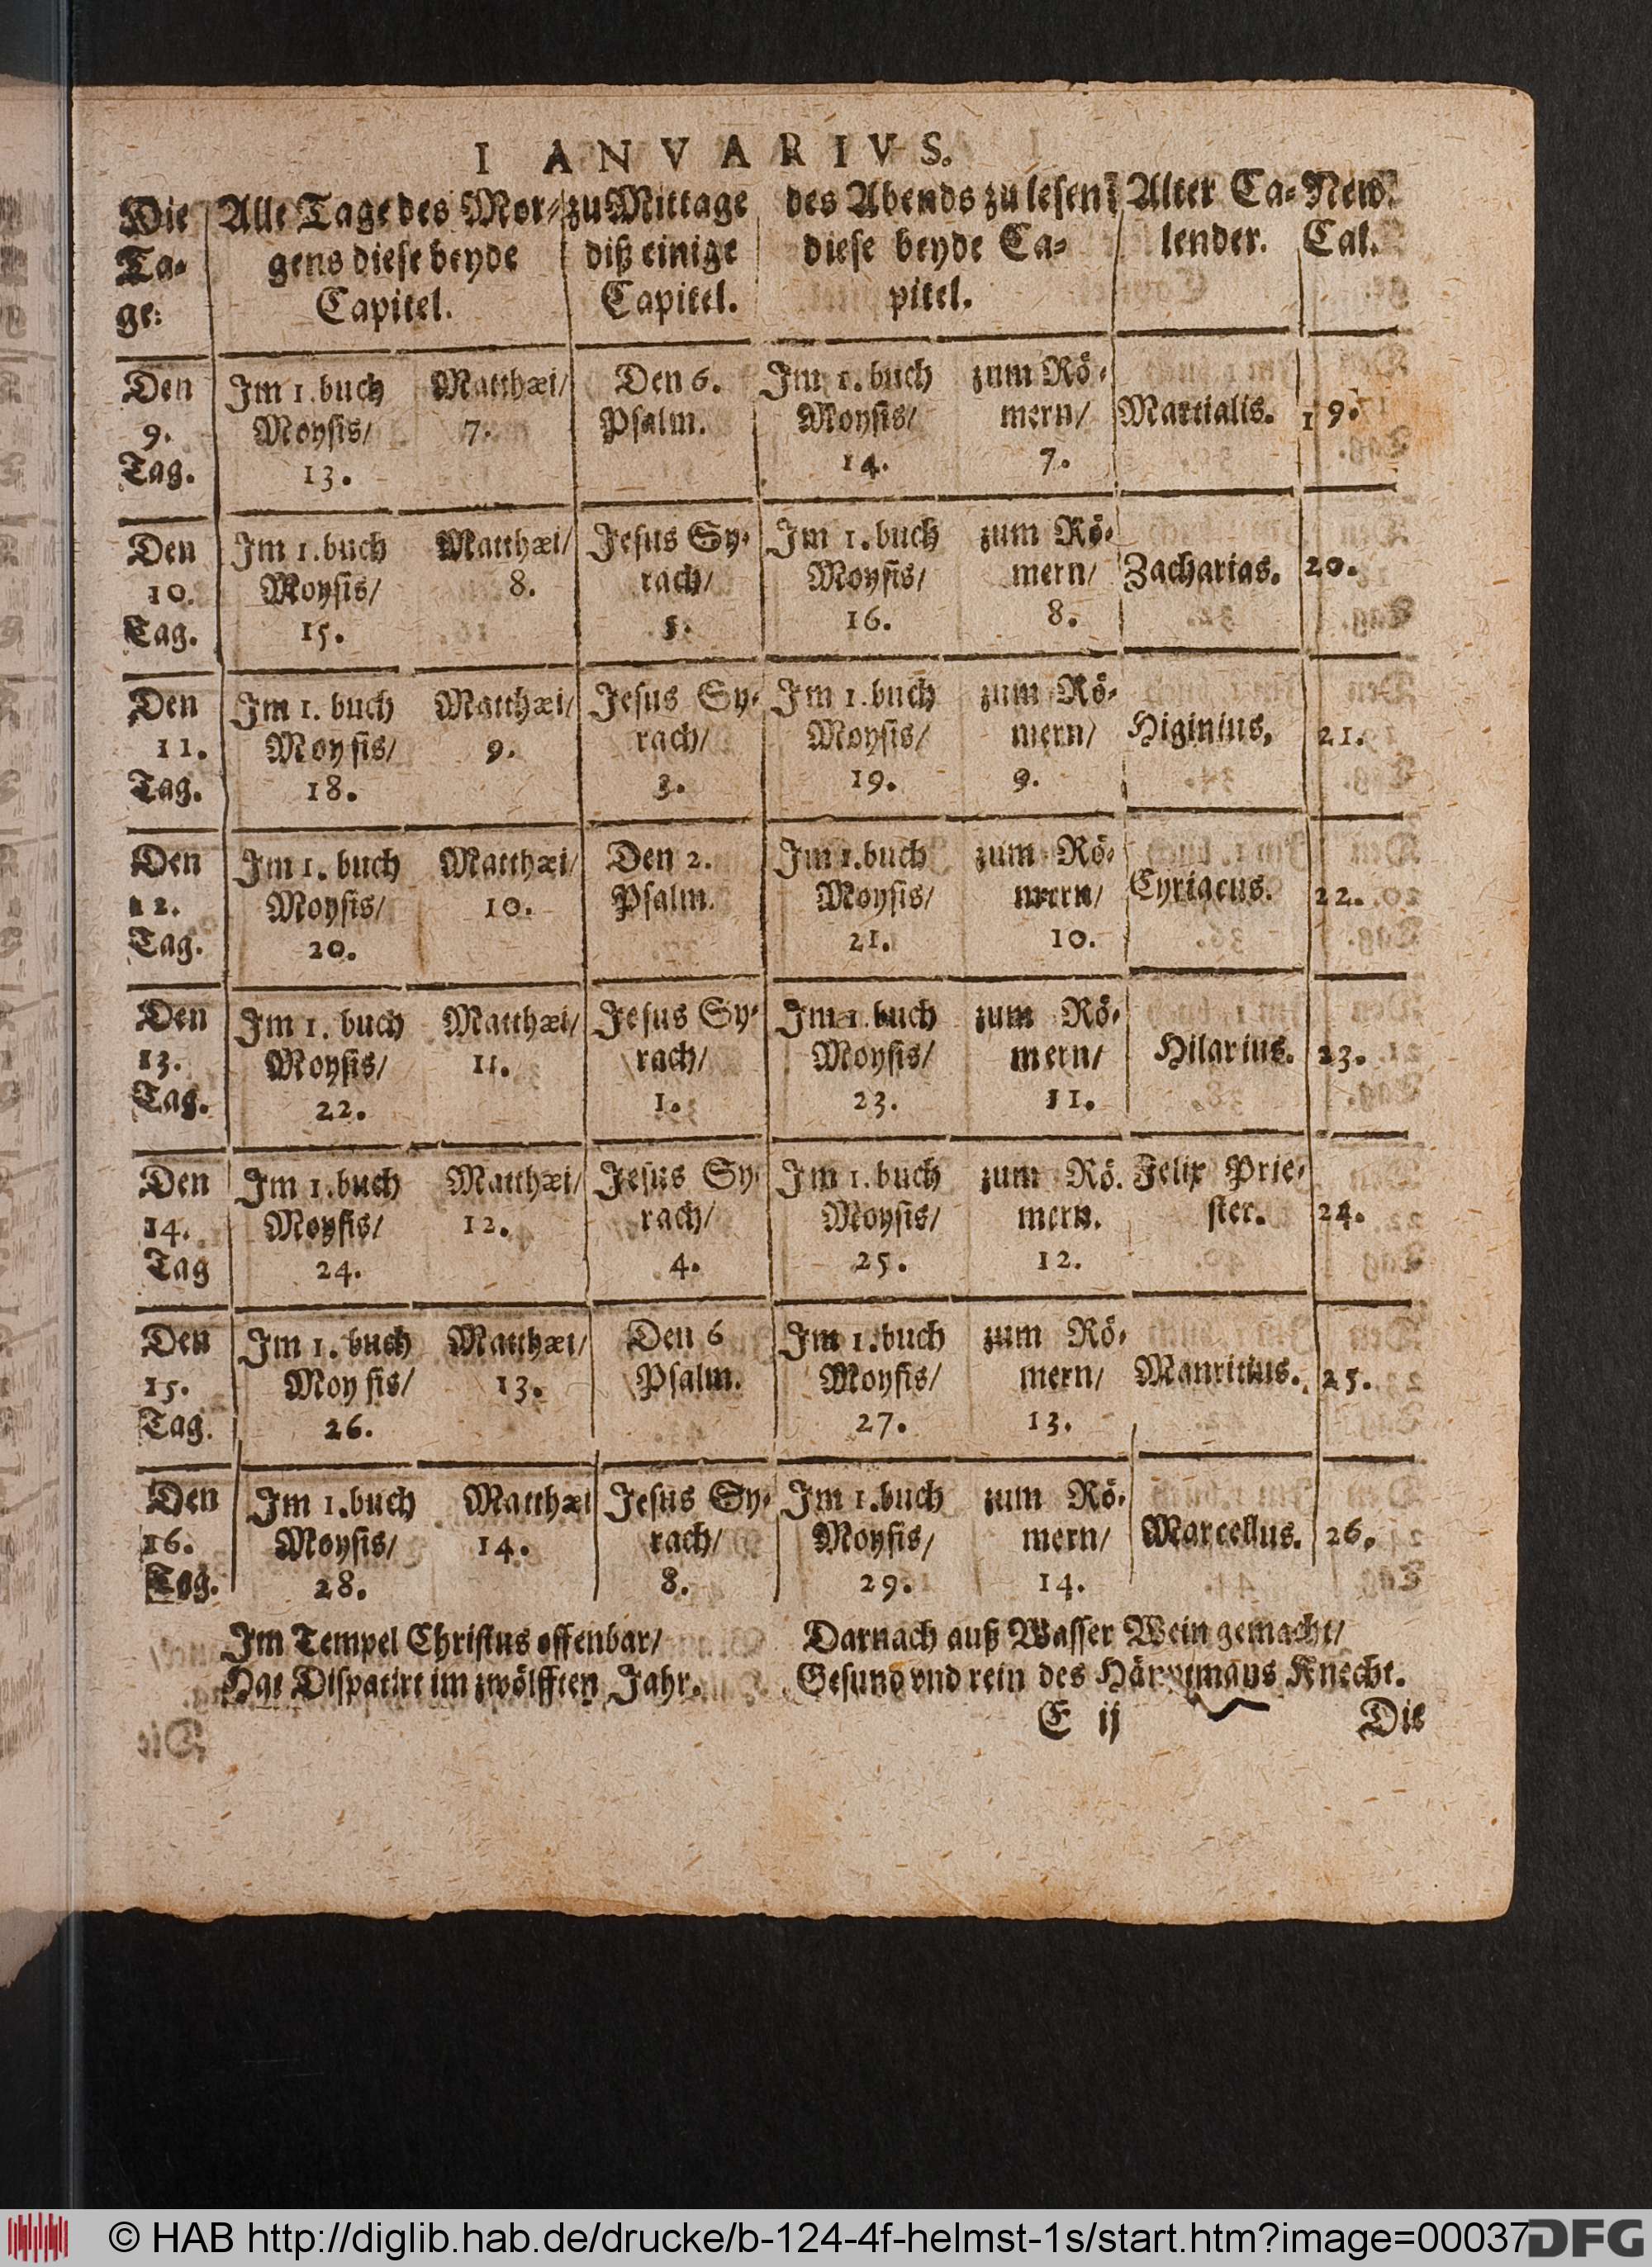 IANVARIVS.
Die Alle Tage des Mor- zu Mittage des Abends zu lesen Alter Ca- New.
Ta- gens diese beyde diß einige diese beyde Ca- lender. Cal.
ge: Capitel. Capitel. pitel.
Den Im 1. buch Matthæi/ Den 6. Im 1. buch zum Rö-
9. Moysis/ 7. Psalm. Moysis/ mern/ Martialis. 19.
Tag. 13. 14. 7.
Den Im 1. buch Matthæi/ Jesus Sy- Im 1. buch zum Rö-
10. Moysis/ 8. rach/ Moysis/ mern/ Zacharias. 20.
Tag. 15. 16. 8.
Den Im 1. buch Matthæi/ Jesus Sy- Im 1. buch zum Rö-
11. Moysis/ 9. rach/ Moysis/ mern/ Higinius, 21.
Tag. 18. 3. 19. 9.
Den Im 1. buch Matthæi/ Den 2. Im 1. buch zum Rö-
12. Moysis/ 10. Psalm. Moysis/ mern/ Cyriacus. 22.
Tag. 20. 21. 10.
Den Im 1. buch Matthæi/ Jesus Sy- Im 1. buch zum Rö-
13. Moysis/ 11. rach/ Moysis/ mern/ Hilarius. 23.
Tag. 22. 1. 23. 11.
Den Im 1. buch Matthæi/ Jesus Sy- Im 1. buch zum Rö. Felix Prie-
14. Moysis/ 12. rach/ Moysis/ mern. ster. 24.
Tag 24. 4. 25. 12.
Den Im 1. buch Matthæi/ Den 6 Im 1. buch zum Rö-
15. Moysis/ 13. Psalm. Moysis/ mern/ Mauritius. 25.
Tag. 26. 27. 13.
Den Im 1. buch Matthæi Jesus Sy- Im 1. buch zum Rö-
16. Moysis/ 14. rach/ Moysis/ mern/ Marcellus. 26.
Tag. 28. 8. 29. 14.
Im Tempel Christus offenbar/
Hat Disputirt im zwölfften Jahr.
Darnach auß Wasser Wein gemacht/
Gesund vnd rein des Knecht.
E ij Die
© HAB http://diglib.hab.de/drucke/b-124-4f-helmst-1s/start.htm?image=00037
DFG